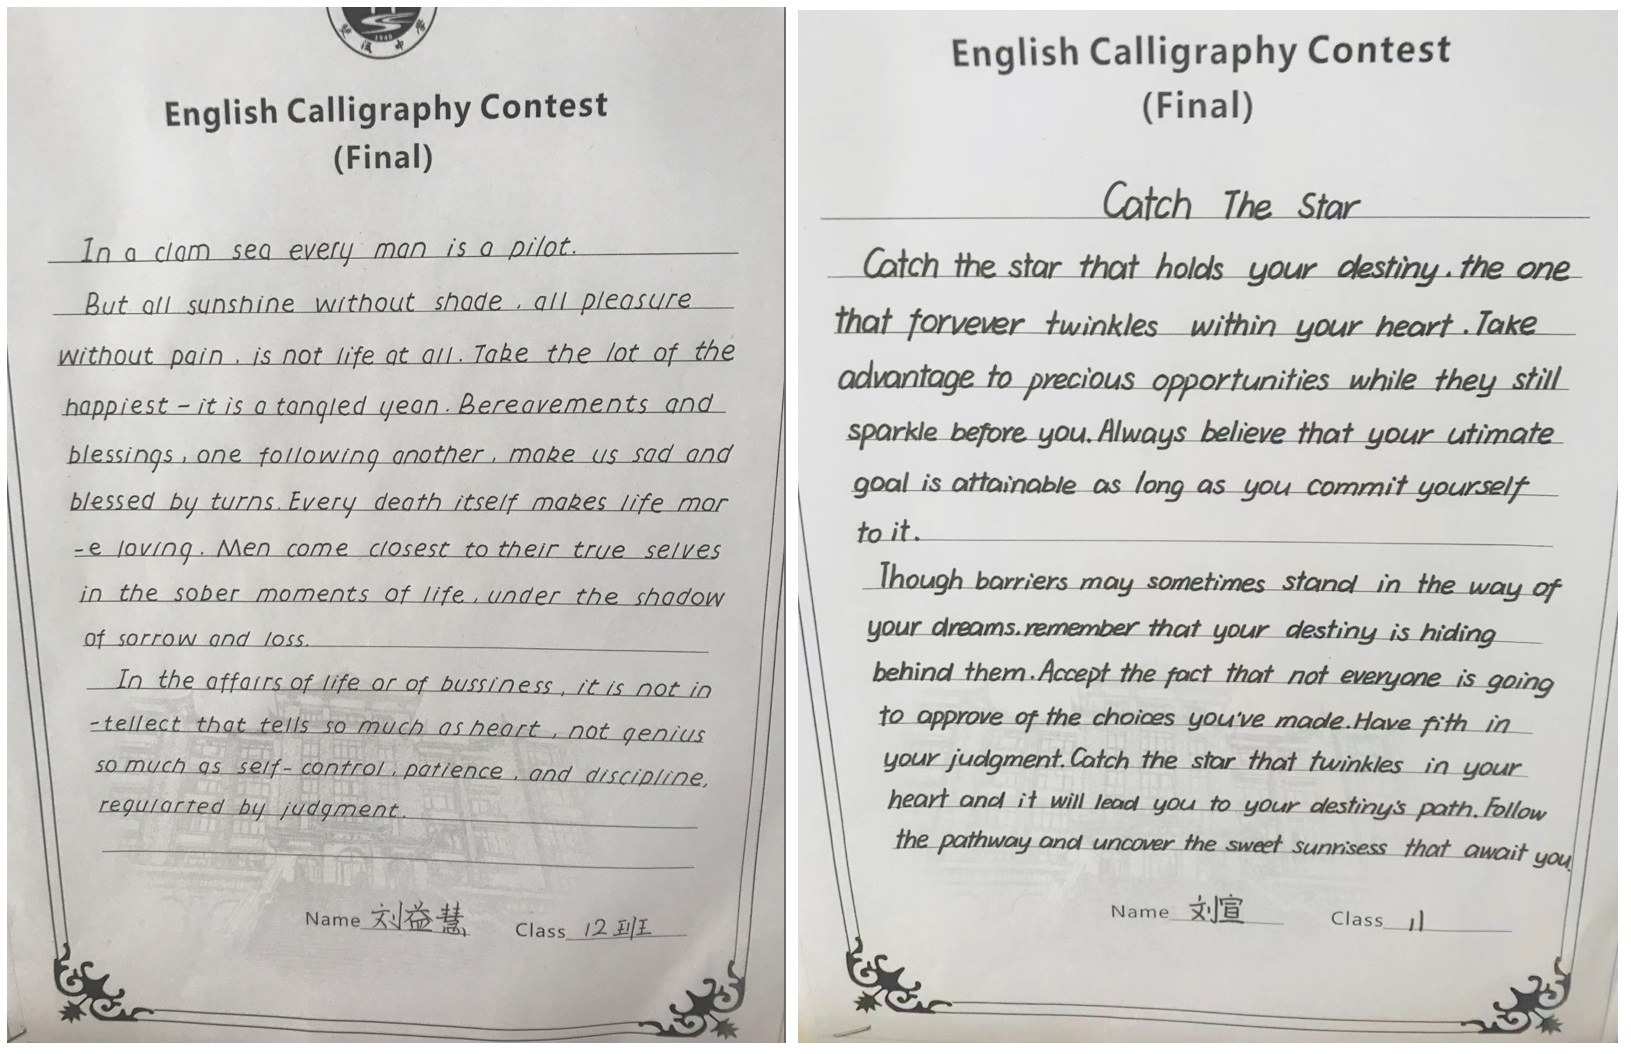 1940
English Calligraphy Contest
(Final)
In a clam sea every man is a pilot.
But all sunshine without shade, all pleasure
without pain, is not life at all. Take the lot of the
happiest - it is a tangled yean. Bereavements and
blessings, one following another, make us sad and
blessed by turns. Every death itself makes life mor
-e loving. Men come closest to their true selves
in the sober moments of life, under the shadow
of sorrow and loss.
In the affairs of life or of bussiness, it is not in
-tellect that tells so much as heart, not genius
so much as self-control, patience, and discipline,
regularted by judgment.
Name 刘益慧 Class 12班
English Calligraphy Contest
(Final)
Catch The Star
Catch the star that holds your destiny. the one
that forvever twinkles within your heart. Take
advantage to precious opportunities while they still
sparkle before you. Always believe that your utimate
goal is attainable as long as you commit yourself
to it.
Though barriers may sometimes stand in the way of
your dreams. remember that your destiny is hiding
behind them. Accept the fact that not everyone is going
to approve of the choices you've made. Have fith in
your judgment. Catch the star that twinkles in your
heart and it will lead you to your destiny's path. Follow
the pathway and uncover the sweet sunrisess that await you.
Name 刘宣 Class 11